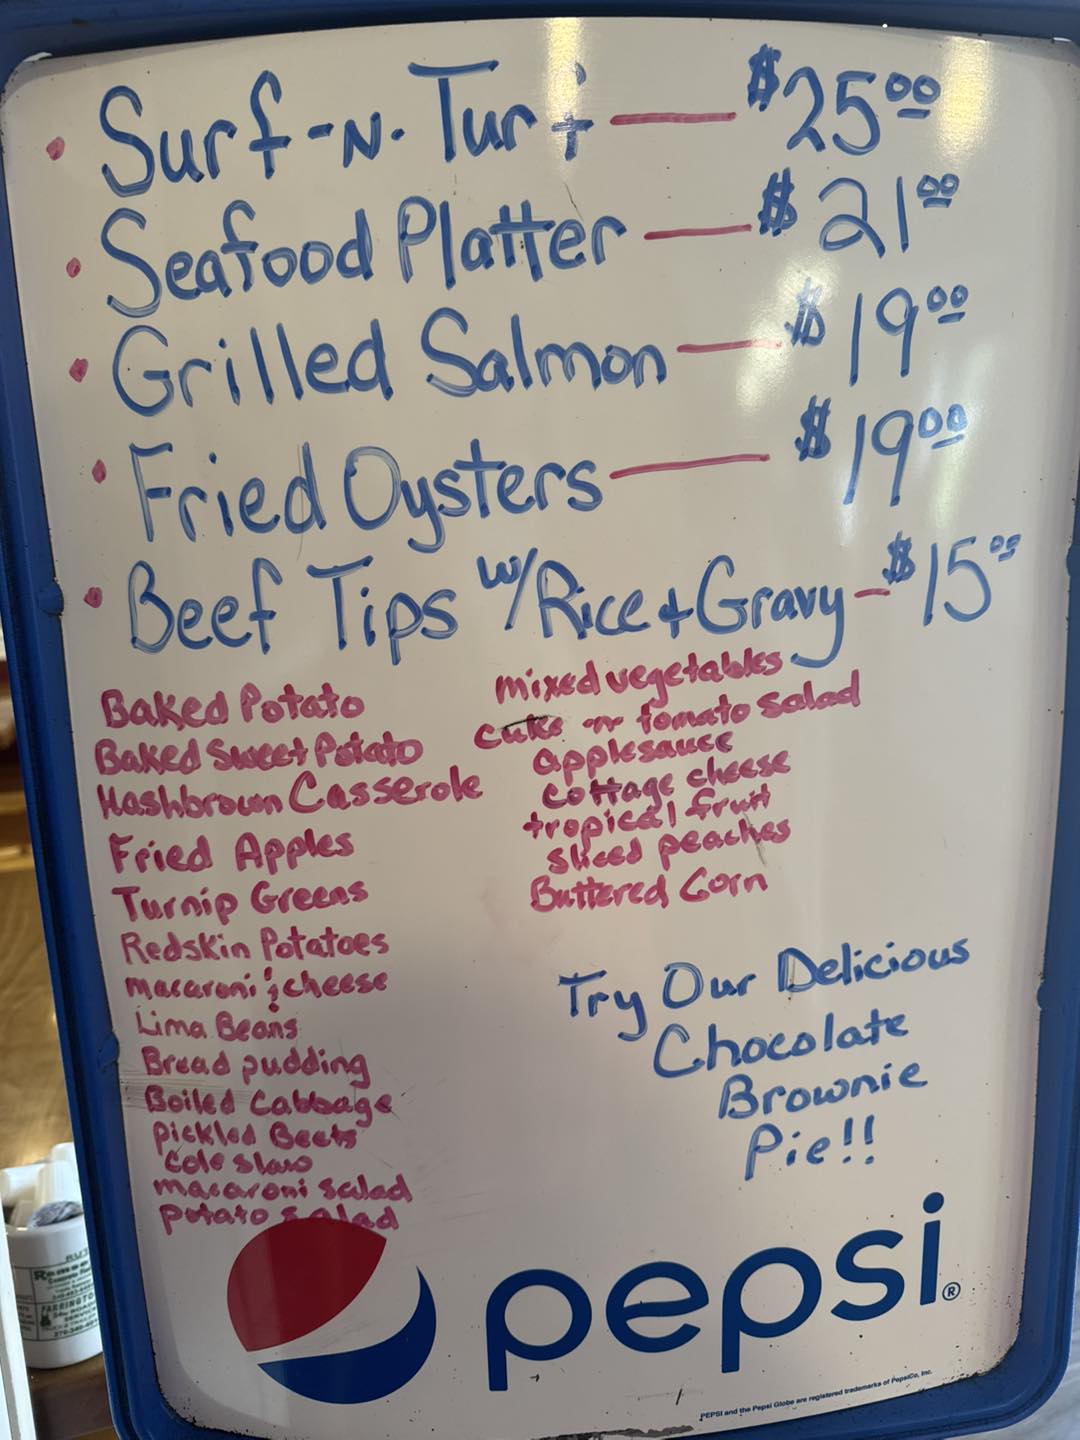 • Surf-N-Turf — $25.00
• Seafood Platter — $21.00
• Grilled Salmon — $19.00
• Fried Oysters — $19.00
• Beef Tips w/Rice + Gravy — $15.00
Baked Potato
Baked Sweet Potato
Hashbrown Casserole
Fried Apples
Turnip Greens
Redskin Potatoes
macaroni & cheese
Lima Beans
Bread pudding
Boiled Cabbage
pickled Beets
cole slaw
macaroni salad
potato salad
mixed vegetables
cuke -n- tomato salad
applesauce
cottage cheese
tropical fruit
sliced peaches
Buttered Corn
Try Our Delicious
Chocolate
Brownie
Pie!!
pepsi®
PEPSI and the Pepsi Globe are registered trademarks of PepsiCo, Inc.